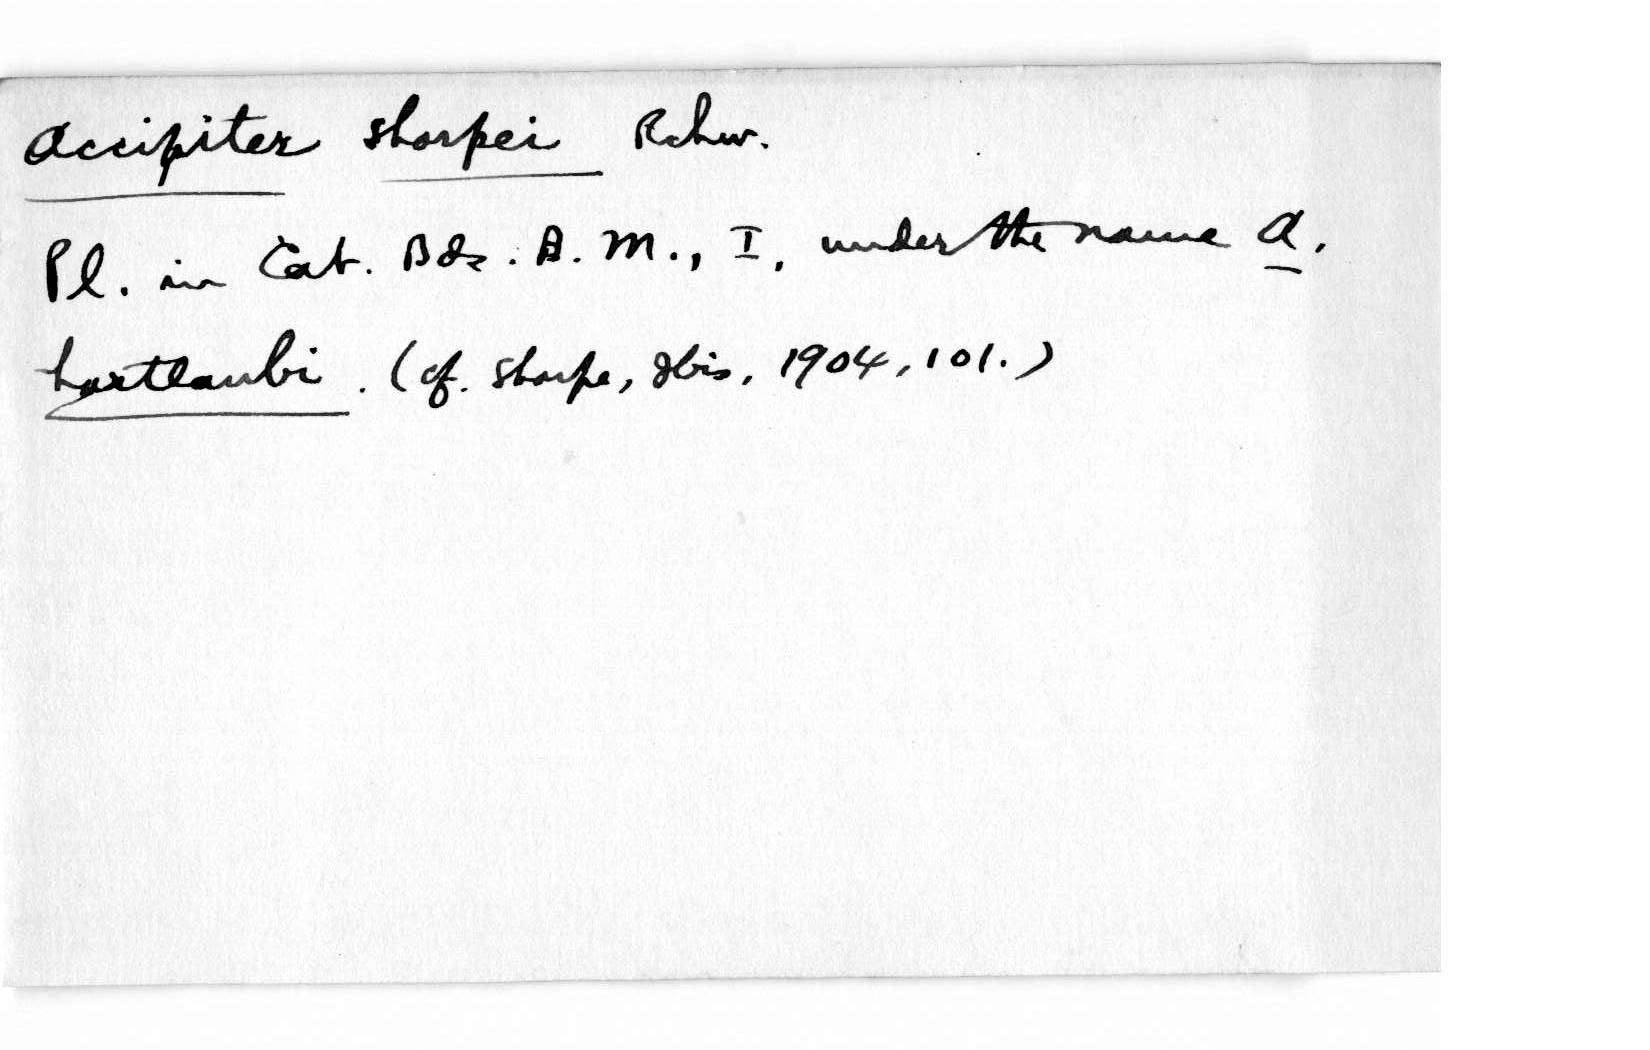 Accipiter sharpei Rchw.
Pl. in Cat. Bds. B. M., I, under the name A.
hartlaubi. (cf. Sharpe, Ibis, 1904, 101.)